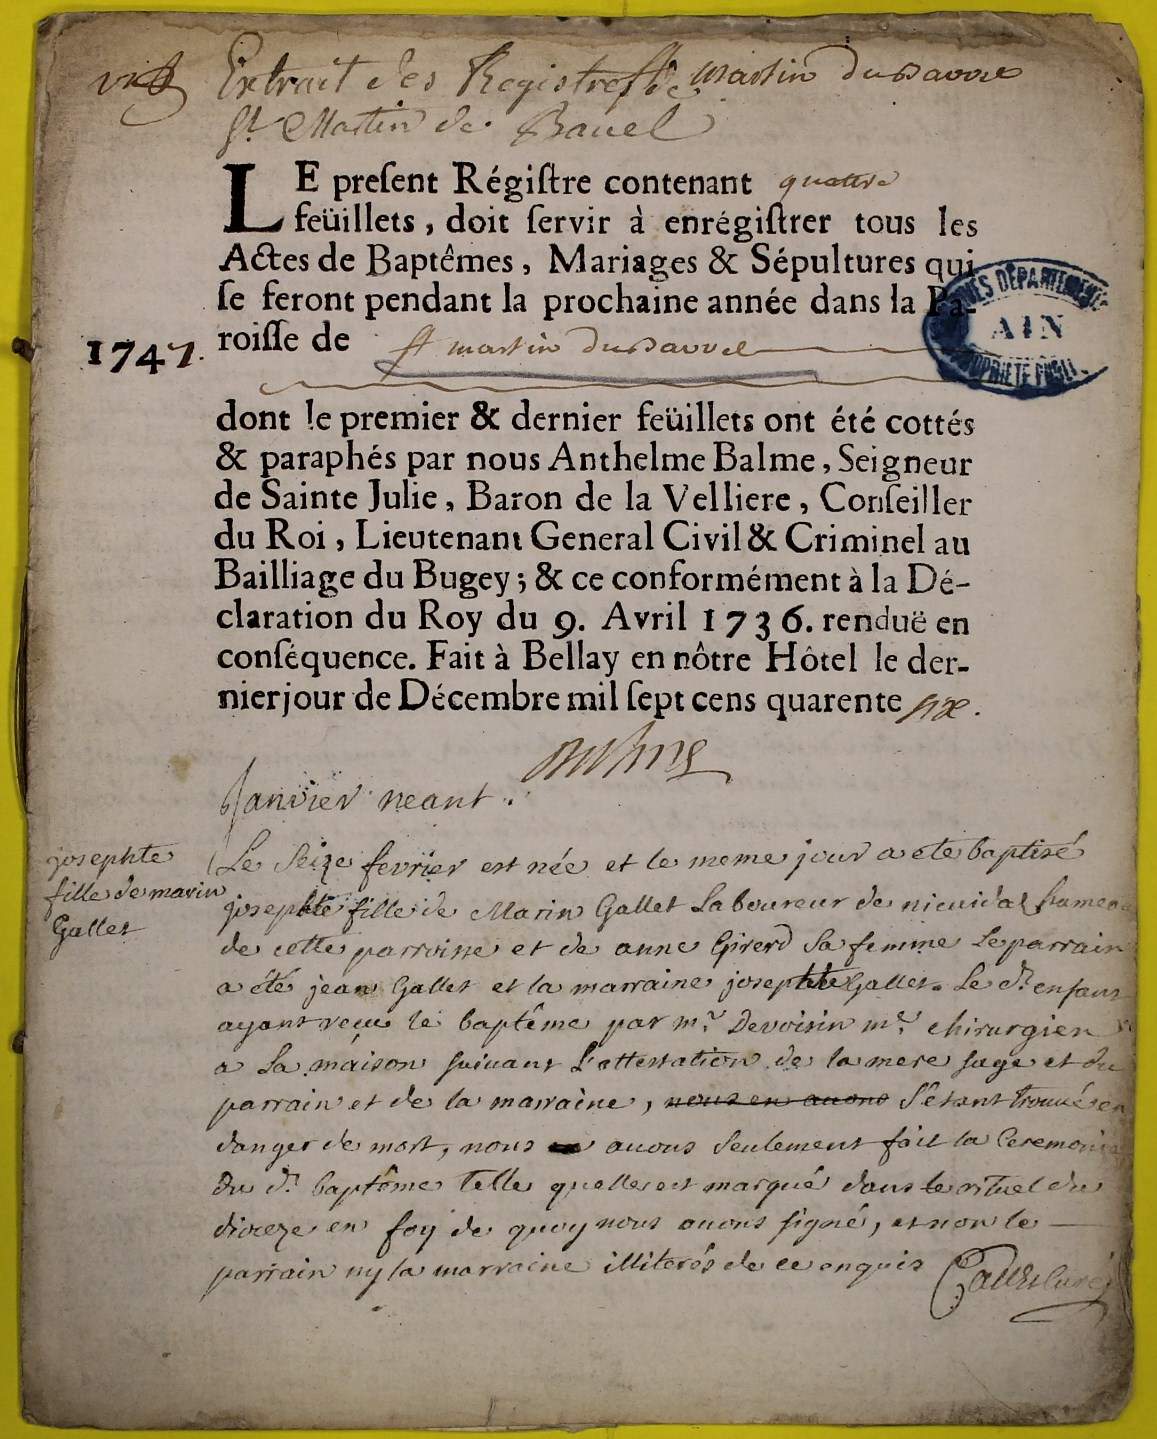 Extrait des Registres de martin du Bavou
St. Martin de Bauel
LE preſent Régiſtre contenant quattre
feüillets, doit ſervir à enrégiſtrer tous les
Actes de Baptêmes, Mariages & Sépultures qui
ſe feront pendant la prochaine année dans la Pa-
1747. roiſſe de st martin du Bavvel
ARCHIVES DÉPARTEMENTALES
AIN
PROPRIÉTÉ PUBLI
dont le premier & dernier feüillets ont été cottés
& paraphés par nous Anthelme Balme, Seigneur
de Sainte Julie, Baron de la Velliere, Conſeiller
du Roi, Lieutenant General Civil & Criminel au
Bailliage du Bugey; & ce conformément à la Dé-
claration du Roy du 9. Avril 1736. renduë en
conſéquence. Fait à Bellay en nôtre Hôtel le der-
nier jour de Décembre mil ſept cens quarente six.
Janvier neant.
josephte
fille de marin
Gallet
Le seize fevrier est née et le meme jour a ete baptisé
josephte fille de Marin Gallet Laboureur de hameau
de cette parroisse et de anne Girerd sa femme Le parrain
a été jean Gallet et la marraine josephte Gallet. Le dt. enfant
ayant reçu le baptême par mr. Devoisin mr. chirurgien
a La maison suivant L'attestation de la mere sage et du
parrain et de la marraine, nous en auons S'etant trouvé en
danger de mort, nous auons seulement fait la Ceremonie
du dt. baptême telle quelle est marqué dans le rituel du
dioceze en foy de quoy nous auons signé, et non le
parrain ny la marraine illiterés de ce enquis